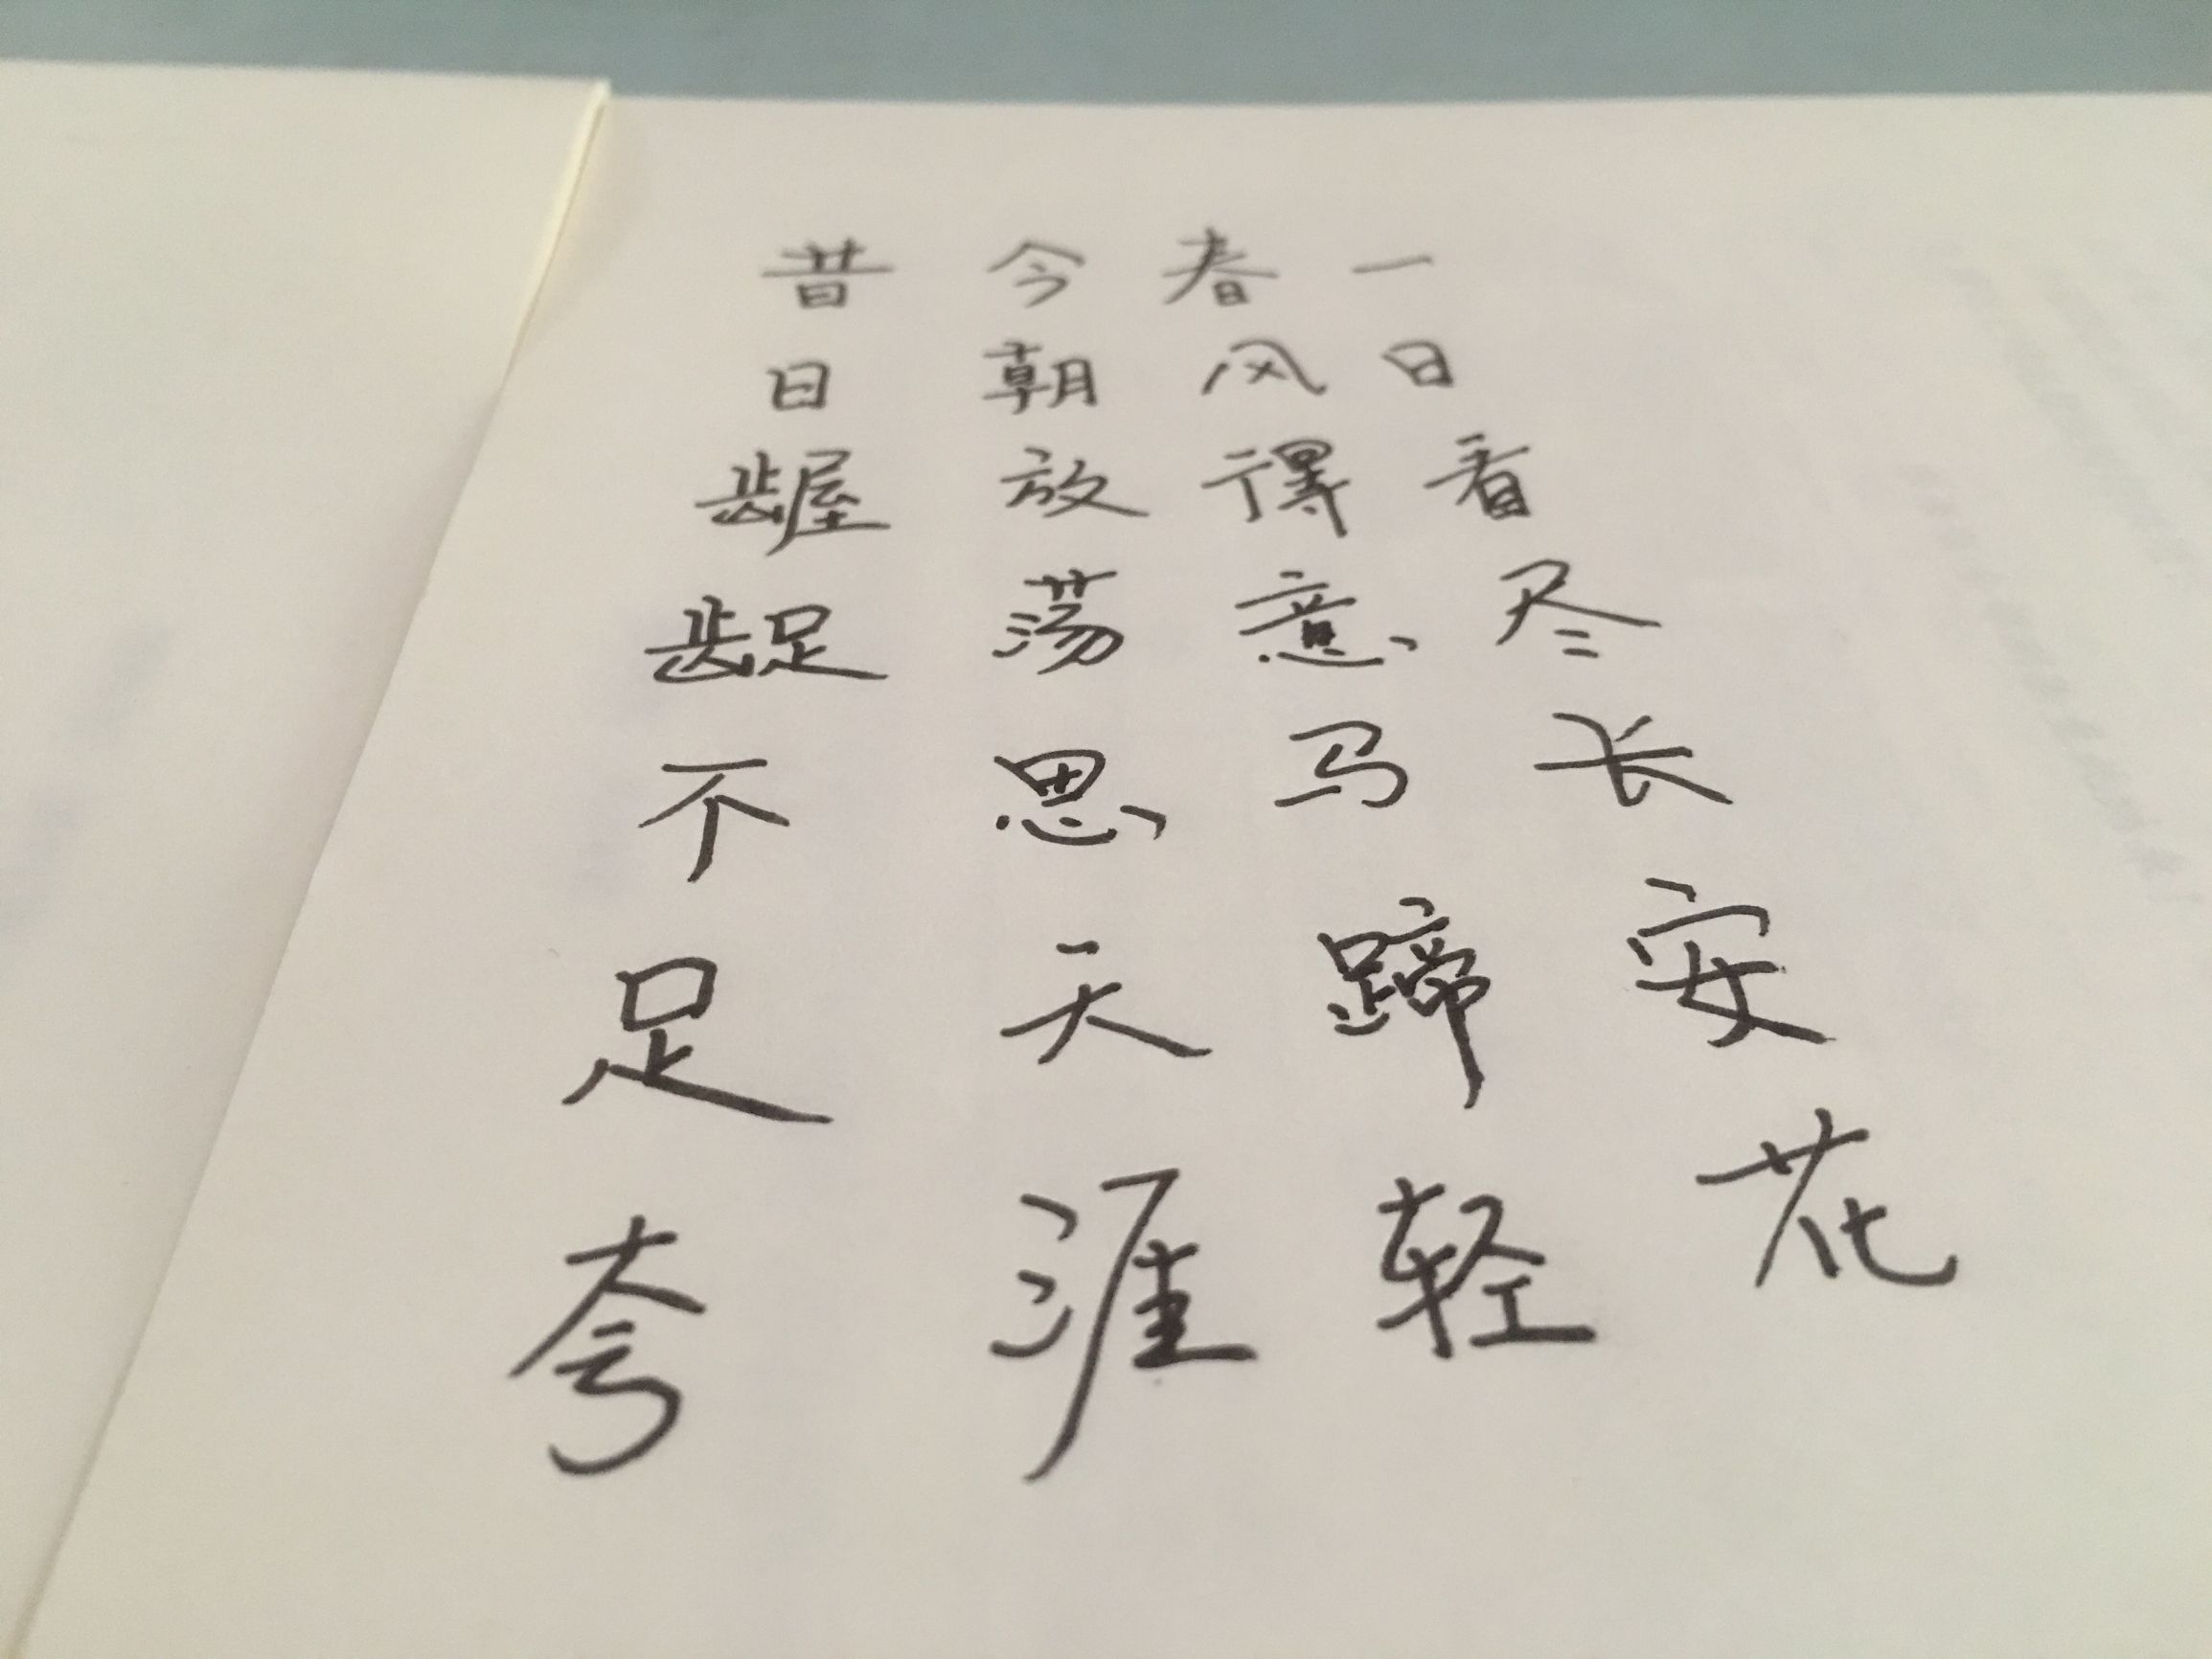 昔日龌龊不足夸
今朝放荡思天涯
春风得意马蹄轻
一日看尽长安花